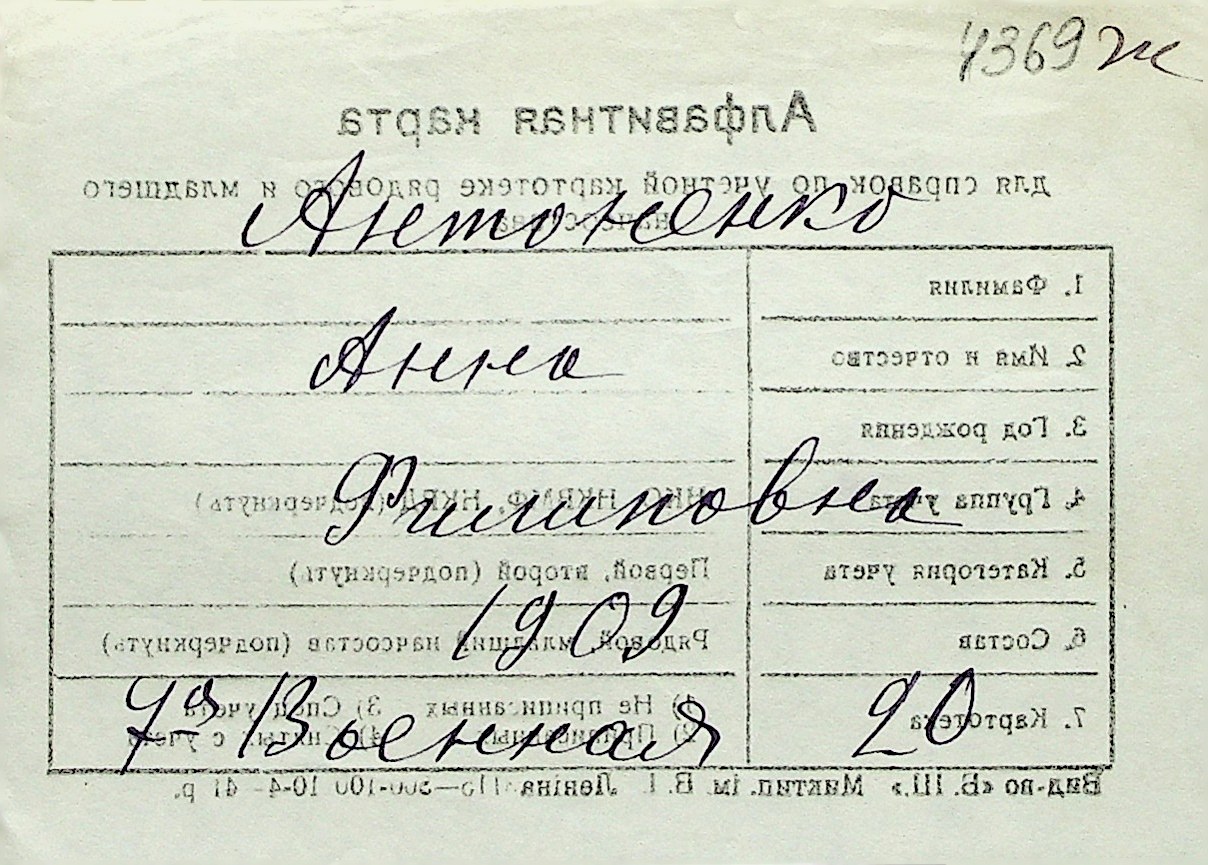 4369 ж
Алфавитная карта
для справок по учетной картотеке рядового и младшего
начсостава
Антоненко
1. Фамилия
2. Имя и отчество
Анна
3. Год рождения
4. Группа учета НКО, НКВМФ, НКВД (подчеркнуть)
Филиповна
5. Категория учета Первой, второй (подчеркнуть)
1909
6. Состав Рядовой, младший начсостав (подчеркнуть)
7. Картотека 1) Не приписанных 3) Спец учета
2) Приписанных 4) Снятых с учета
7я Военная 20
Вид-во «Б. Ш.» Миктип. ім. В. І. Леніна 10-4- 41 р.